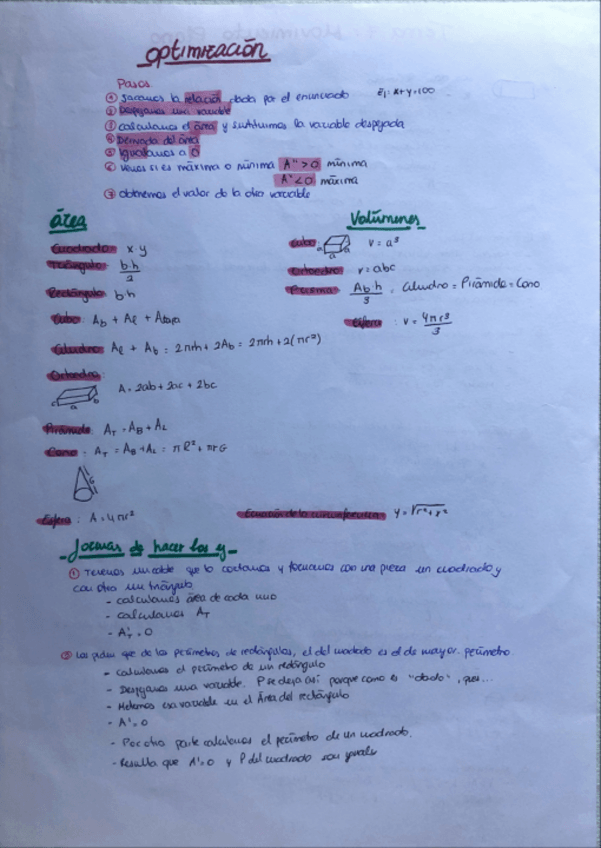 optimización
Pasos
① Sacamos la relación dada por el enunciado Ej: x+y=100
② Despejamos una variable
③ calculamos el área y sustituimos la variable despejada
④ Derivada del área
⑤ Igualamos a 0
⑥ vemos si es máxima o mínima A''>0 mínima
A''<0 máxima
⑦ obtenemos el valor de la otra variable
área
Cuadrado: x·y
Triángulo: b·h/2
Rectángulo b·h
Cubo: Ab + Al + Atapa
Cilindro: Al + Ab = 2πrh + 2Ab = 2πrh + 2(πr²)
Ortoedro:
c a b
A = 2ab + 2ac + 2bc
Pirámide: AT = AB + AL
Cono: AT = AB + AL = πR² + πrG
G
Esfera: A = 4πr²
Volúmenes
Cubo: a a a v = a³
Ortoedro: v = abc
Prisma: Ab·h/3 = Cilindro = Pirámide = Cono
Esfera: v = 4πr³/3
Ecuación de la circunferencia: y =
Formas de hacer los y
① Tenemos un cable que lo cortamos y formamos con una pieza un cuadrado y
con otra un triángulo
- calculamos área de cada uno
- calculamos AT
- A'T = 0
② Los piden que de los perímetros de rectángulos, el del cuadrado es el de mayor perímetro.
- calculamos el perímetro de un rectángulo
- Despejamos una variable. P se deja así porque como es "dado", pues...
- Metemos esa variable en el Área del rectángulo
- A' = 0
- Por otra parte calculamos el perímetro de un cuadrado.
- Resulta que A'=0 y P del cuadrado son iguales